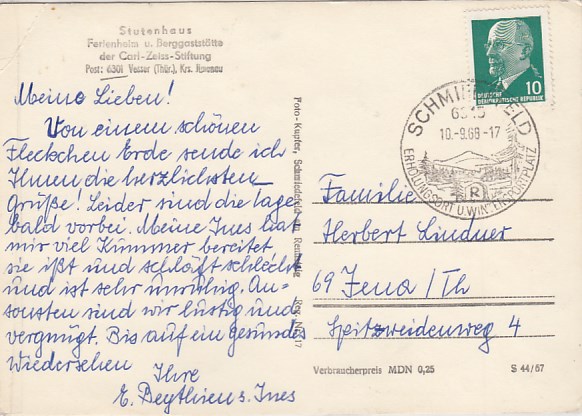 Stutenhaus
Ferienheim u. Berggaststätte
der Carl-Zeiss-Stiftung
Post: 6301 Vesser (Thür.), Krs. Ilmenau
Meine Lieben!
Von einem schönen
Fleckchen Erde sende ich
Ihnen die herzlichsten
Grüße! Leider sind die Tage
bald vorbei. Meine Ines hat
mir viel Kummer bereitet
sie ißt und schläft schlecht
und ist sehr unruhig. An-
sonsten sind wir lustig und
vergnügt. Bis auf ein gesundes
Wiedersehen
Ihre
E. Beythien u. Ines
Foto-Kupfer, Schmiedefeld am Rennsteig
10
DEUTSCHE
DEMOKRATISCHE REPUBLIK
SCHMIEDEFELD
10.-9.68-17
ERHOLUNGSORT U. WINTERSPORTPLATZ
R
Familie
Herbert Lindner
69 Jena/Th
Spitzweidenweg 4
Verbraucherpreis MDN 0,25
S 44/67